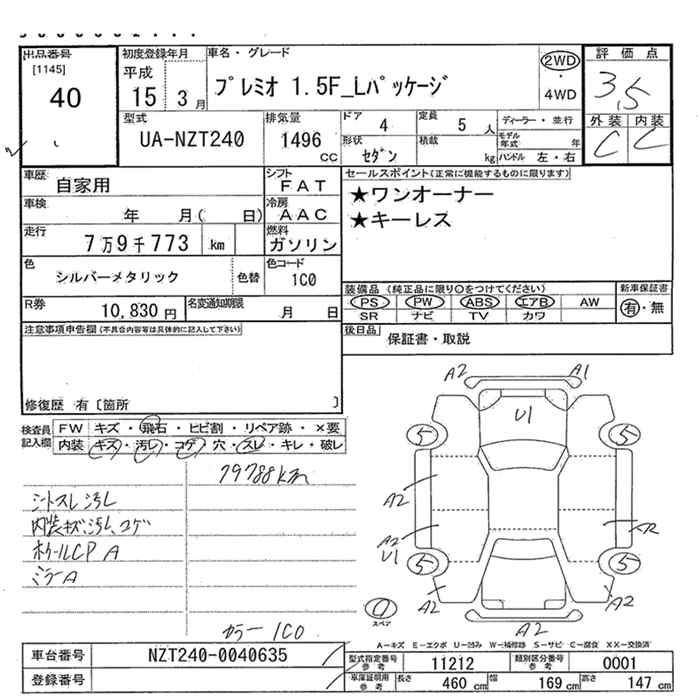 出品番号
[1145]
40
初度登録年月
平成
15
3月
車名・グレード
プレミオ 1.5F_Lパッケージ
2WD
・
4WD
評価点
3.5
外装
内装
C
C
型式
UA-NZT240
排気量
1496
CC
ドア
4
定員
5人
ディーラー・並行
モデル年式
年
形状
セダン
積載
kg
ハンドル 左・右
車歴
自家用
シフト
FAT
車検
年 月( 日)
冷房
AAC
走行
7万9千773
km
燃料
ガソリン
色
シルバーメタリック
色替
色コード
1C0
R券
10,830円
名変通知期限
月 日
セールスポイント(正常に機能するものに限ります)
★ワンオーナー
★キーレス
装備品 (純正品に限り○をつけてください)
新車保証書
PS
PW
ABS
エアB
AW
SR
ナビ
TV
カワ
有・無
後日品
保証書・取説
注意事項申告欄(不具合内容等は具体的に記入して下さい)
修復歴 有〔箇所 〕
検査員記入欄
FW キズ・飛石・ヒビ割・リペア跡・×要
内装 キズ・汚レ・コゲ・穴・スレ・キレ・破レ
79788km
シートスレ汚レ
内装キズ汚レ、コゲ
ホイールCP A
ミラーA
カラー 1C0
A2
A1
U1
5
5
A2
A2
U1
AR
5
5
A2
A2
A2
スペア
A-キズ E-エクボ U-凹み W-補修跡 S-サビ C-腐食 XX-交換済
車台番号
NZT240-0040635
登録番号
型式指定番号
参考
11212
類別区分番号
参考
0001
車庫証明用
参考
長さ
460cm
幅
169cm
高さ
147cm